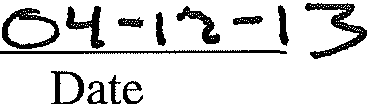 04-12-13
Date